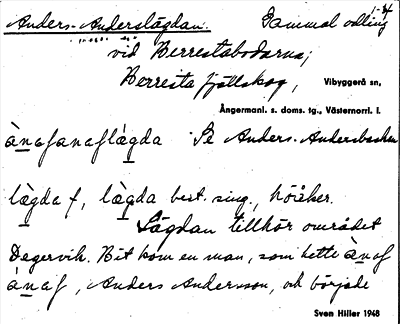 Anders-Anderslägdan. Gammal odling 1-84
vid Berrestabodarna;
Berresta fjällskog, Vibyggerå sn,
Ångermanl. s. doms. tg., Västernorrl. l.
ànafanaflägda Se Anders-Andersbacken
lägda f, lägda best. sing., höåker.
Lägdan tillhör området
Degervik. Dit kom en man, som hette ànaf
ànaf, Anders Andersson, och började
Sven Hiller 1948